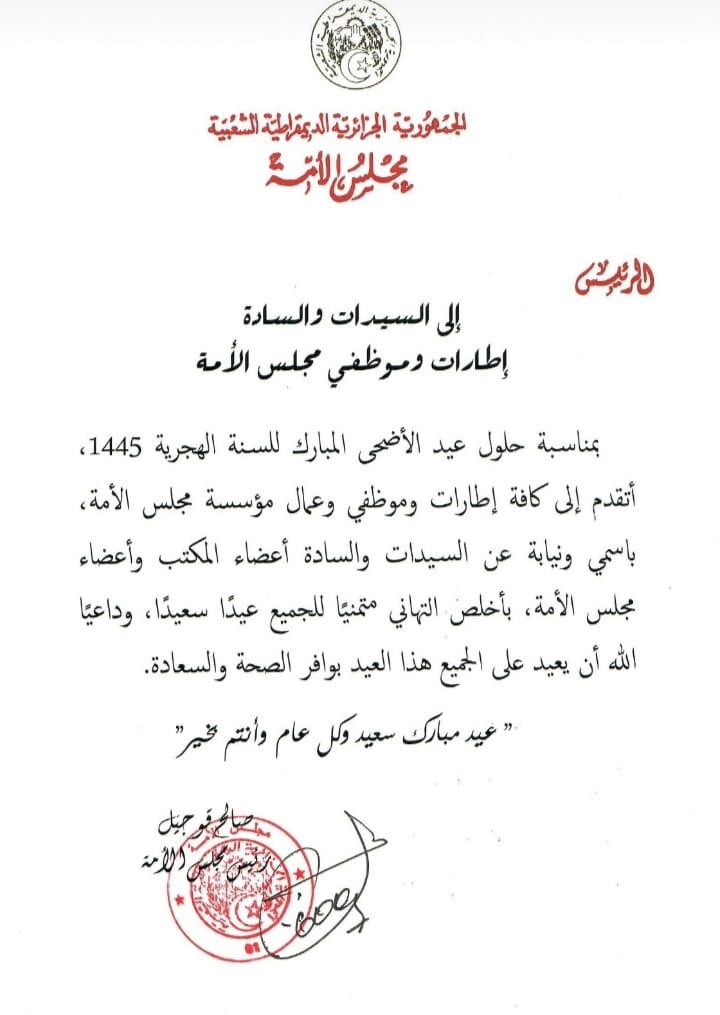 الجمهورية الجزائرية الديمقراطية الشعبية
مجلس الأمة
الرئيس
إلى السيدات والسادة
إطارات وموظفي مجلس الأمة
بمناسبة حلول عيد الأضحى المبارك للسنة الهجرية 1445،
أتقدم إلى كافة إطارات وموظفي وعمال مؤسسة مجلس الأمة،
باسمي ونيابة عن السيدات والسادة أعضاء المكتب وأعضاء
مجلس الأمة، بأخلص التهاني متمنيًا للجميع عيدًا سعيدًا، وداعيًا
الله أن يعيد على الجميع هذا العيد بوافر الصحة والسعادة.
"عيد مبارك سعيد وكل عام وأنتم بخير"
صالح قوجيل
رئيس مجلس الأمة